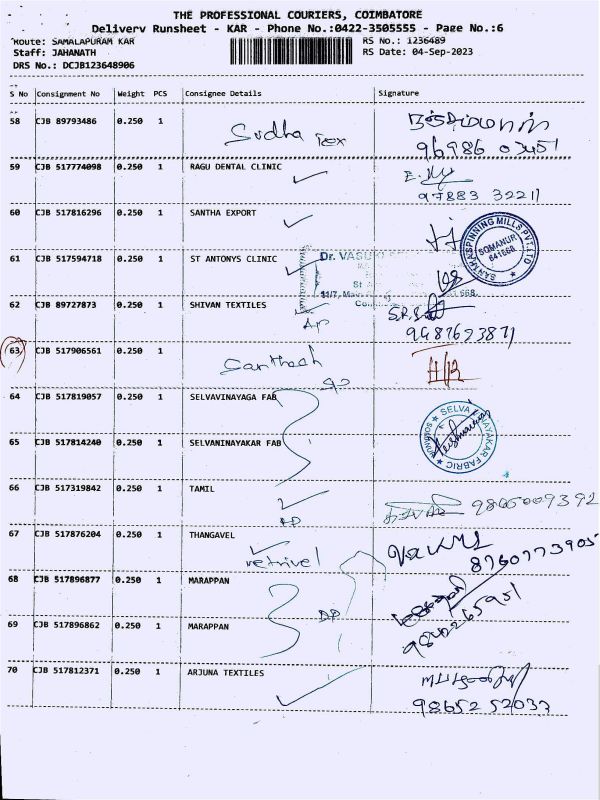 THE PROFESSIONAL COURIERS, COIMBATORE
Delivery Runsheet - KAR - Phone No.:0422-3505555 - Page No.:6
Route: SAMALAPURAM KAR RS No.: 1236489
Staff: JAHANATH RS Date: 04-Sep-2023
DRS No.: DCJB123648906
S No Consignment No Weight PCS Consignee Details Signature
58 CJB 89793486 0.250 1 Sudha Tex
59 CJB 517774098 0.250 1 RAGU DENTAL CLINIC
97883 32211
60 CJB 517816296 0.250 1 SANTHA EXPORT
SPINNING MILLS PVT.LTD
SOMANUR
641668
61 CJB 517594718 0.250 1 ST ANTONYS CLINIC
Dr. VASU
62 CJB 89727873 0.250 1 SHIVAN TEXTILES
63 CJB 517906561 0.250 1 Santhosh
64 CJB 517819057 0.250 1 SELVAVINAYAGA FAB
65 CJB 517814240 0.250 1 SELVANINAYAKAR FAB
66 CJB 517319842 0.250 1 TAMIL
9865009392
67 CJB 517876204 0.250 1 THANGAVEL
vetrivel
8760773905
68 CJB 517896877 0.250 1 MARAPPAN
69 CJB 517896862 0.250 1 MARAPPAN
9842265951
70 CJB 517812371 0.250 1 ARJUNA TEXTILES
98652 52037